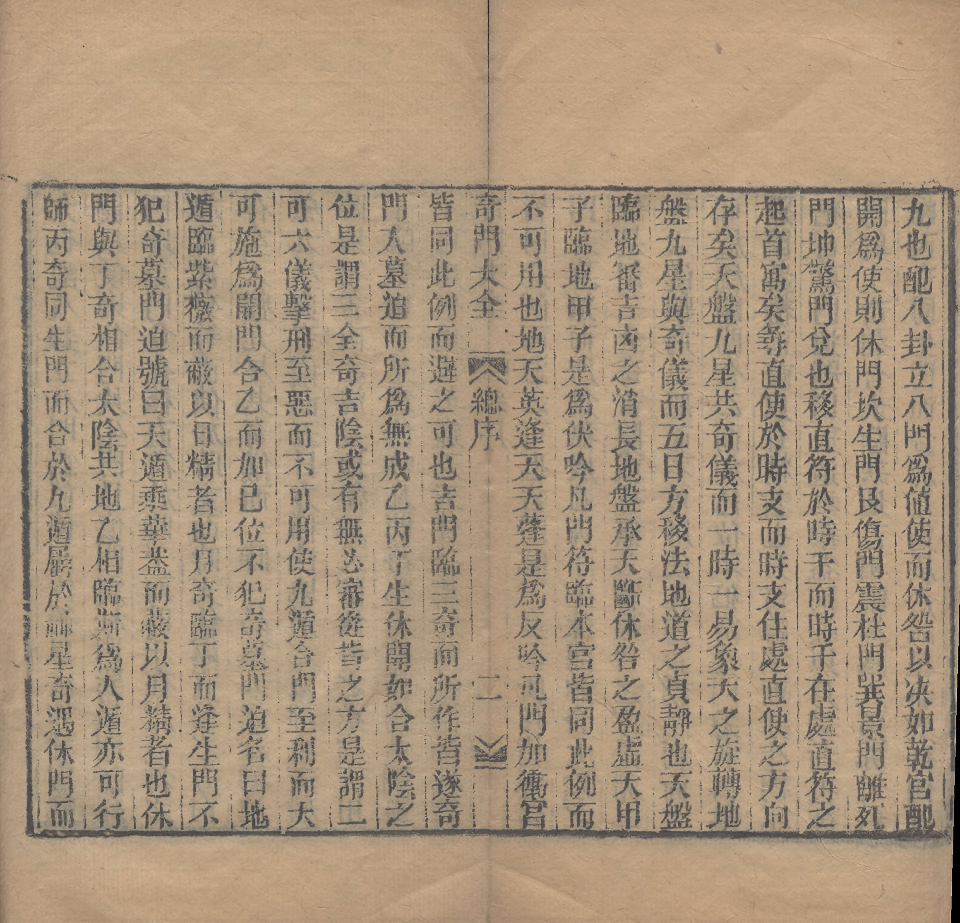 九也配八卦立八門為值使而休咎以决如乾宫配
開爲使則休門坎生門艮傷門震杜門巽景門離死
門坤驚門兌也移直符於時干而時干在處直符之
起首寓矣尋直使於時支而時支住處直使之方向
存矣天盤九星共奇儀而一時一易象天之旋轉地
盤九星與奇儀而五日方移法地道之貞靜也天盤
臨地審吉凶之消長地盤承天斷休咎之盈虛天甲
子臨地甲子是爲伏吟凡門符臨本宮皆同此例而
不可用也地天英逢天天蓬是爲反吟凡門加衝宮
奇門大全 總序 二
皆同此例而避之可也吉門臨三奇而所作皆遂奇
門入墓迫而所為無成乙丙丁生休開如合太陰之
位是謂三全奇吉陰或有無必審從皆之方是謂二
可六儀擊刑至惡而不可用使九遁合門至利而大
可施爲開門合乙而加已位不犯奇墓門迫名曰地
遁臨紫薇而蔽以日精者也月奇臨丁而逢生門不
犯奇墓門迫號曰天遁乘華盖而蔽以月精者也休
門與丁奇相合太陰共地乙相臨斯為人遁亦可行
師丙奇同生門而合於九遁屬於神星奇遇休門而